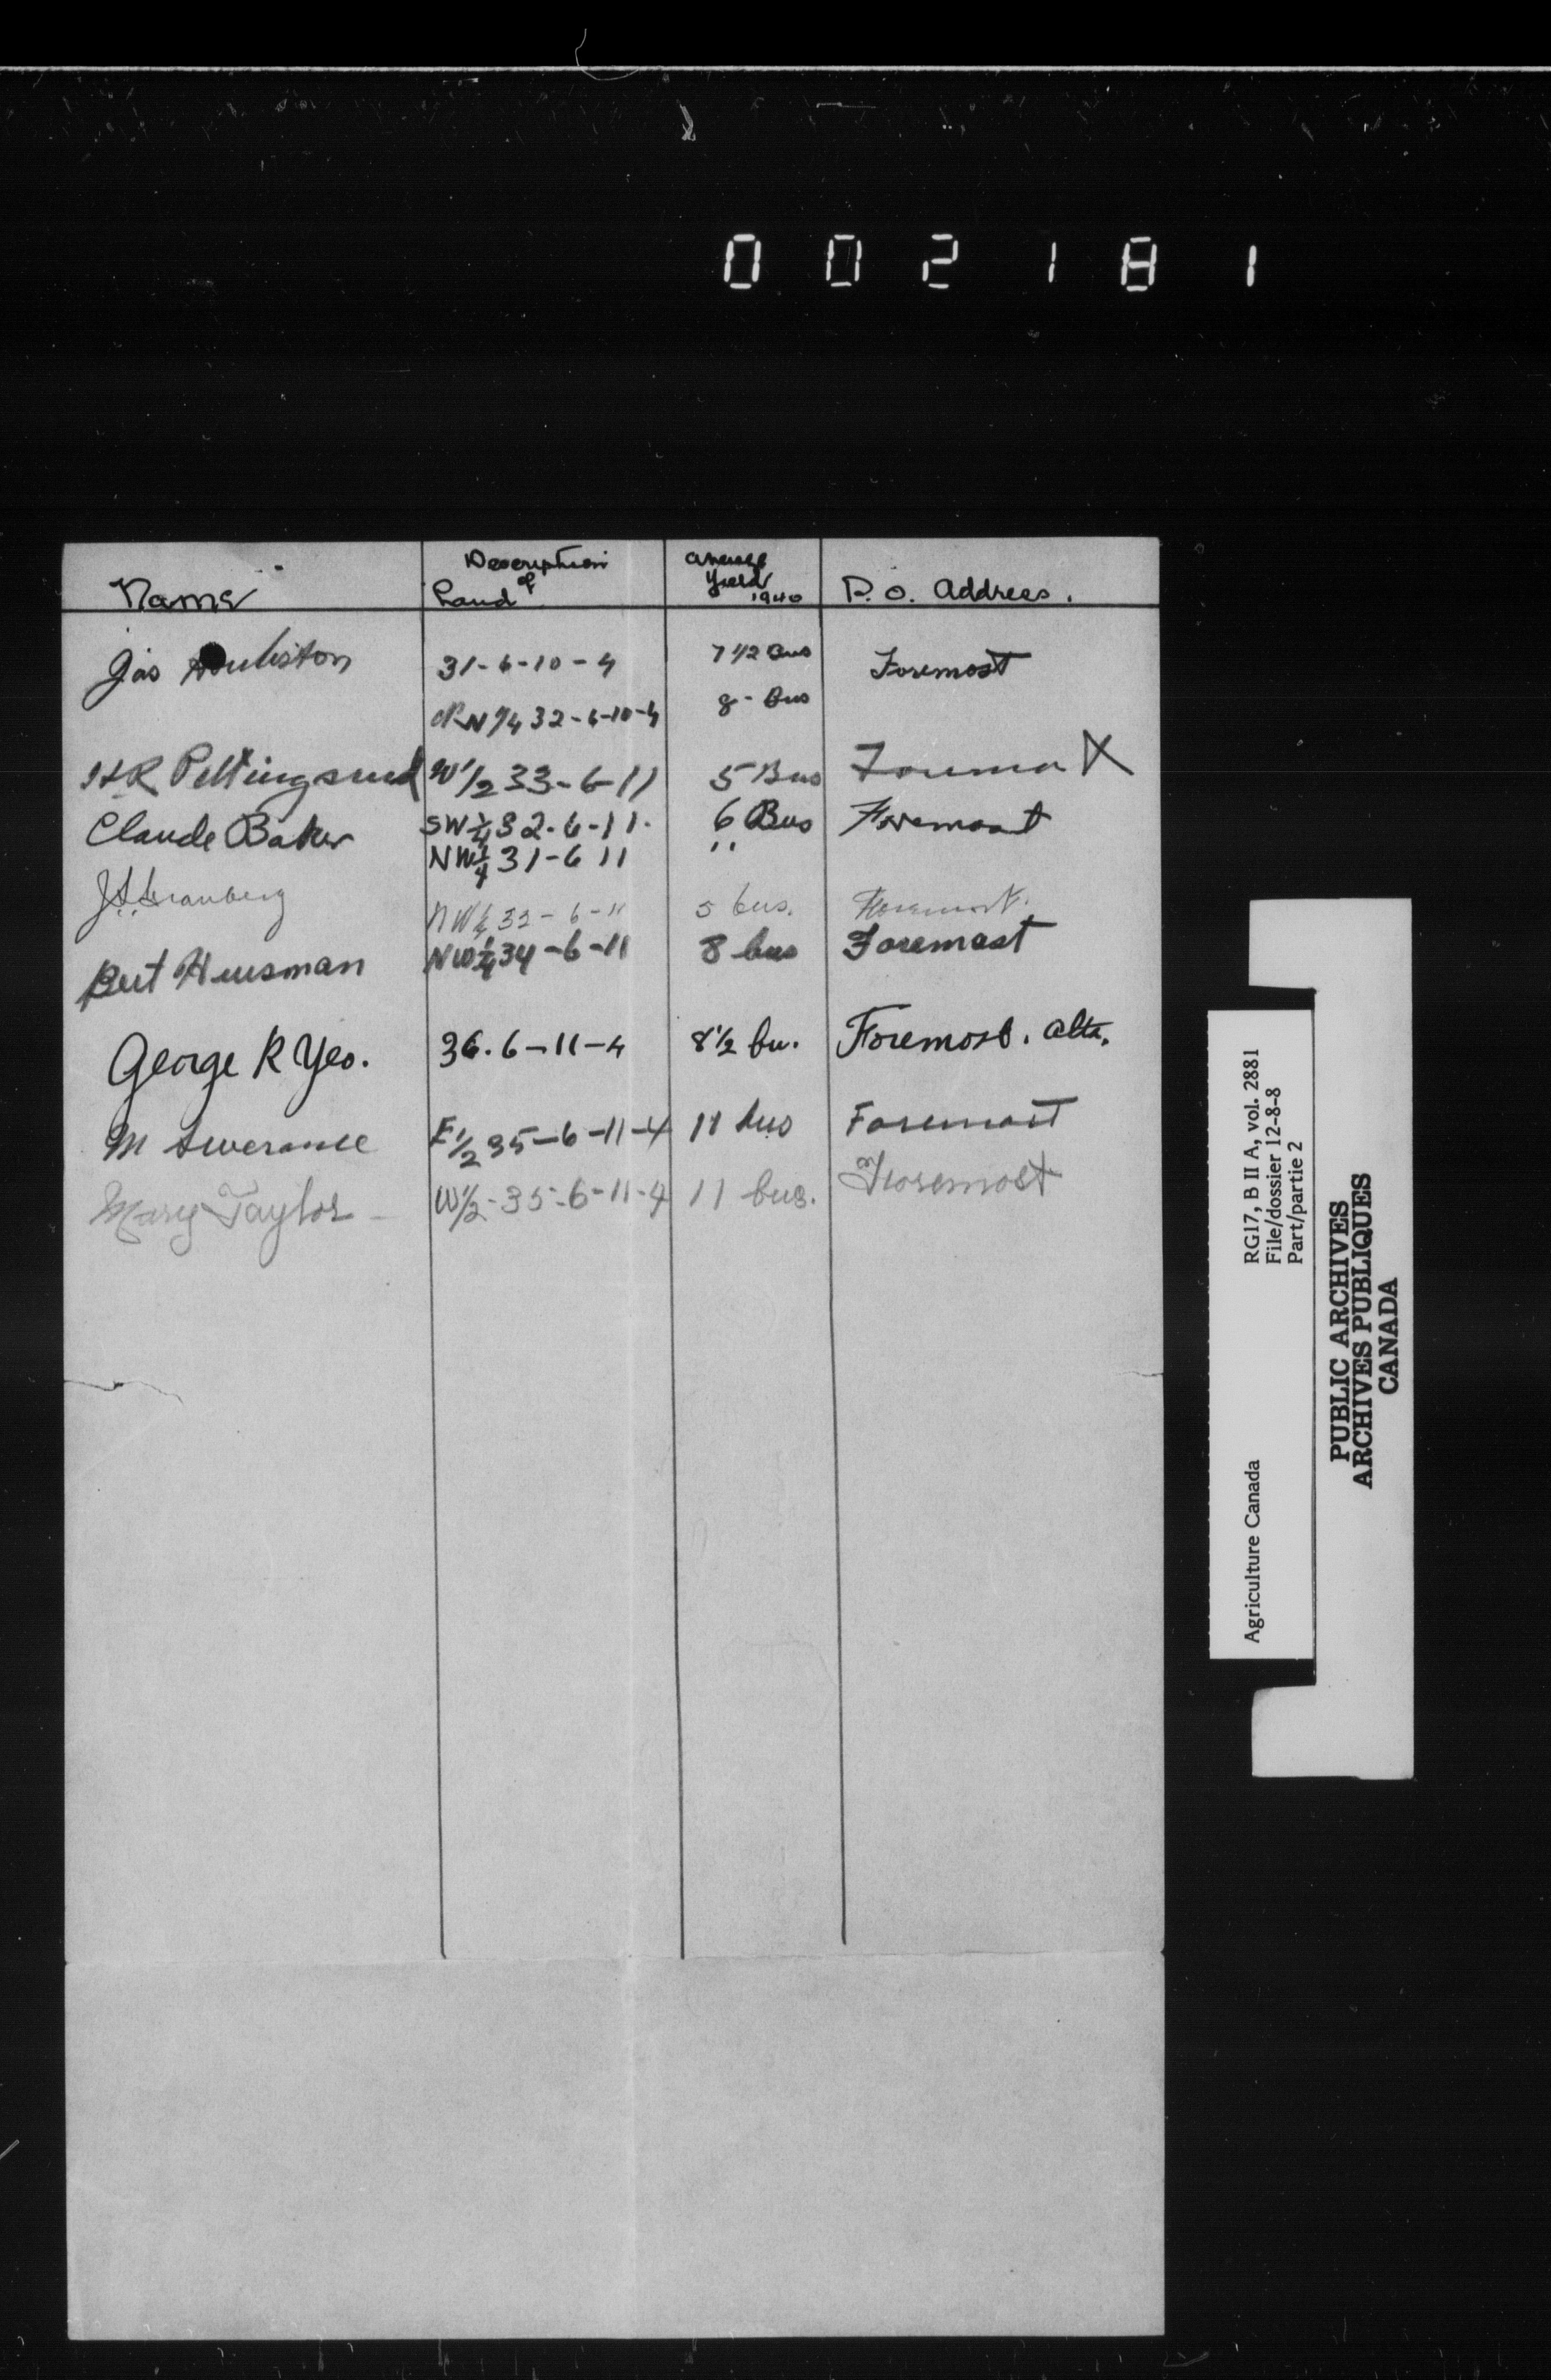 002181
Name Description of Land average yield 1940 P.O. Address.
Jas 31-6-10-4 7 1/2 Bus Foremost
N 1/4 32-6-10-4 8 - Bus
H R W 1/2 33-6-11 5 Bus
Claude Baker SW 1/4 32-6-11. 6 Bus Foremost
NW 1/4 31-6 11 "
NW 1/4 33-6-11 5 bus. Foremost.
Bert Huisman NW 1/4 34-6-11 8 bus Foremost
George R Yeo. 36.6-11-4 8 1/2 bu. Foremost. Alta.
M Swerance E 1/2 35-6-11-4 11 bus Foremost
Mary Taylor - W 1/2-35-6-11-4 11 bus. Foremost
Agriculture Canada RG17, B II A, vol. 2881
File/dossier 12-8-8
Part/partie 2
PUBLIC ARCHIVES
ARCHIVES PUBLIQUES
CANADA